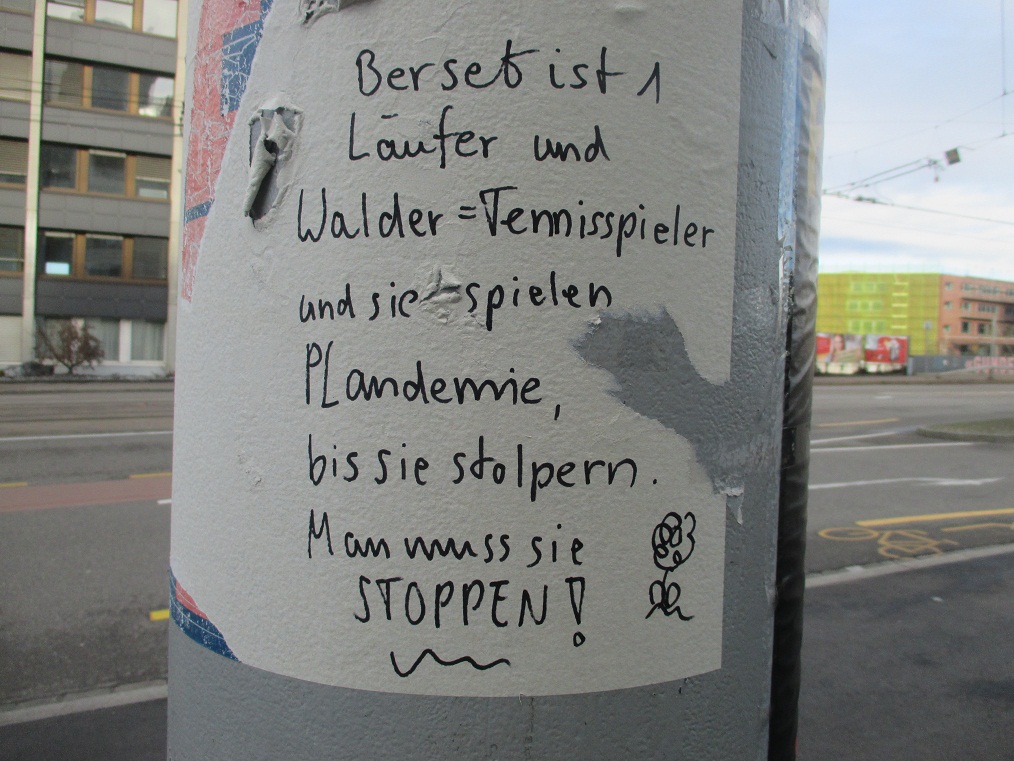 Berset ist 1
Läufer und
Walder = Tennisspieler
und sie spielen
PLandemie,
bis sie stolpern.
Man muss sie
STOPPEN!